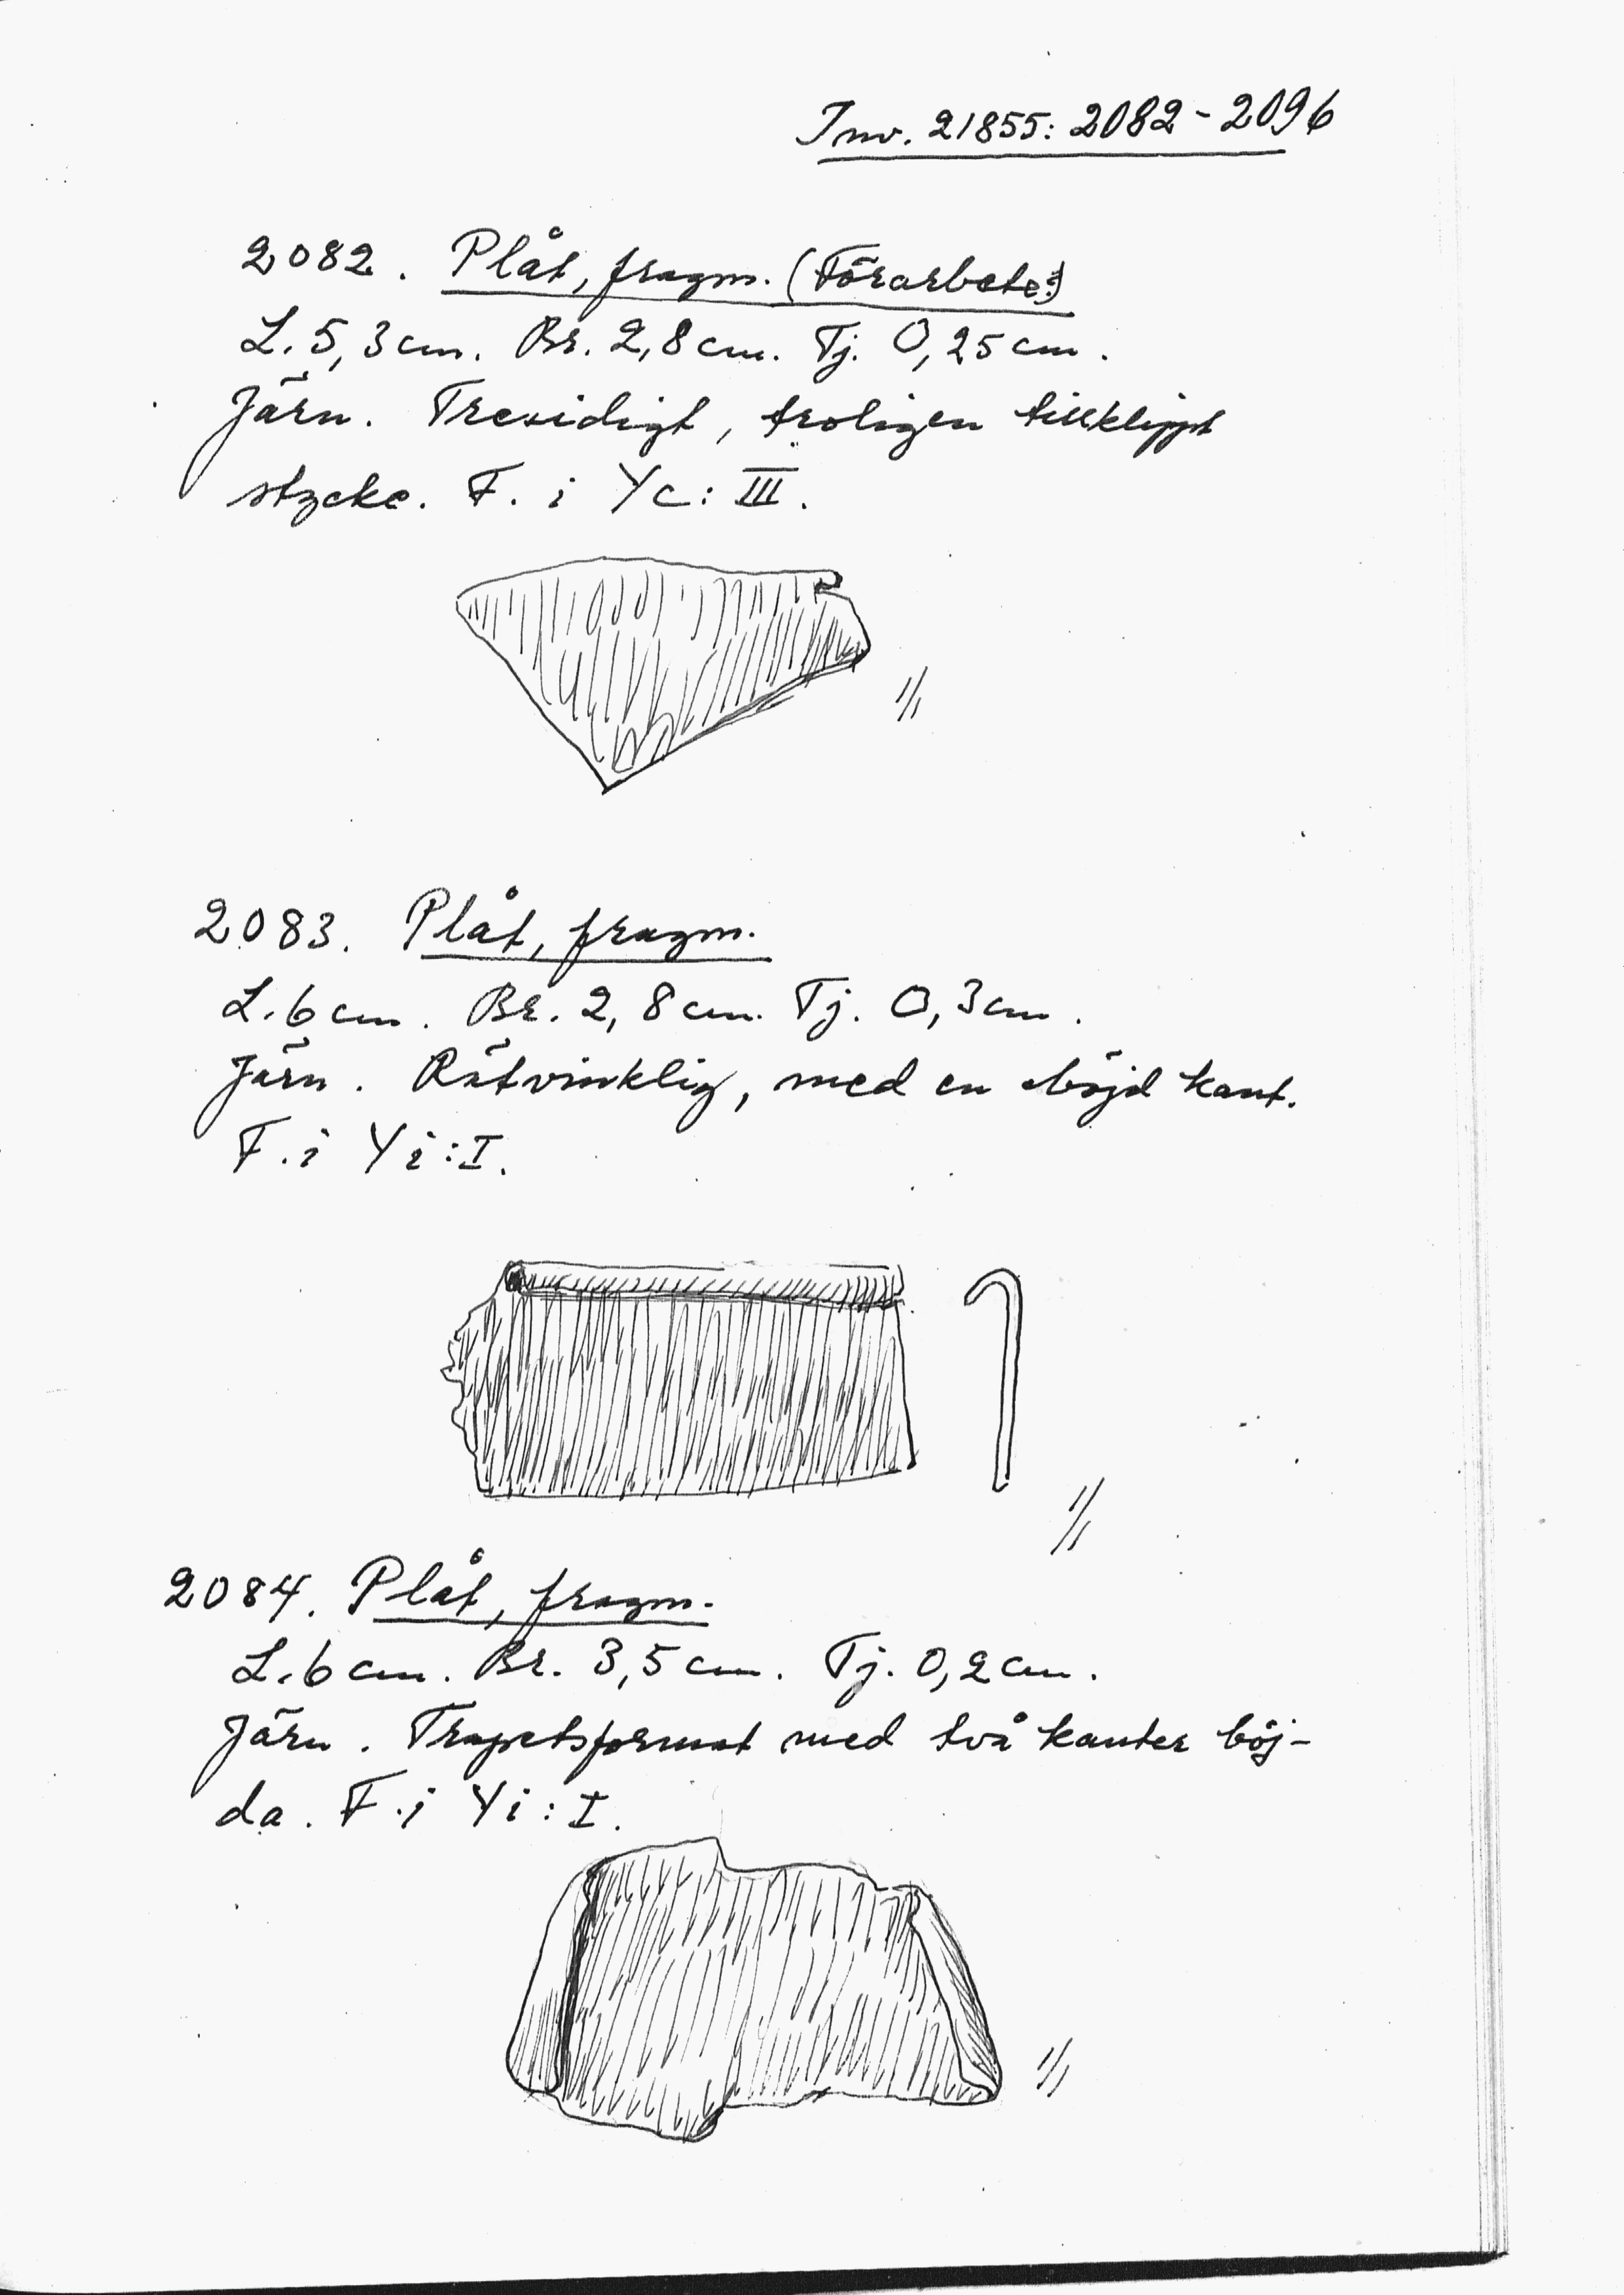 Inv. 21855: 2082-2096
2082. Plåt, fragm. (Förarbete?)
L. 5,3 cm. Br. 2,8 cm. Tj. 0,25 cm.
Järn. Tresidigt, troligen tillklippt
stycke. F. i Yc: III.
1/1
2083. Plåt, fragm.
L. 6 cm. Br. 2,8 cm. Tj. 0,3 cm.
Järn. Rätvinklig, med en böjd kant.
F. i Yi: I.
1/1
2084. Plåt, fragm.
L. 6 cm. Br. 3,5 cm. Tj. 0,2 cm.
Järn. Trapetsformat med två kanter böj-
da. F. i Yi: I.
1/1